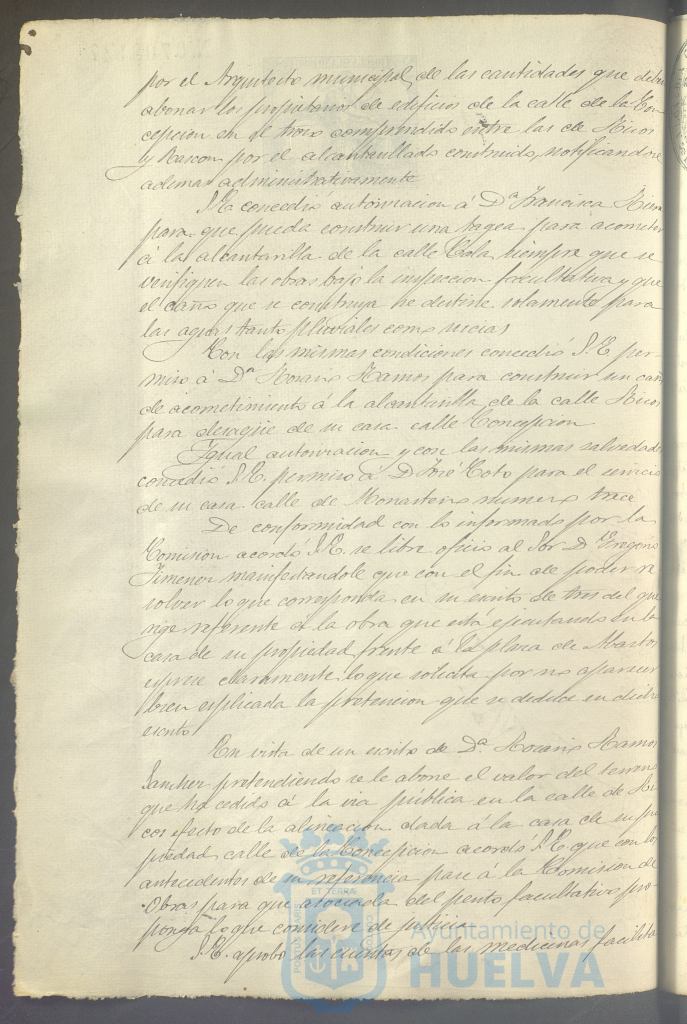 por el Arquitecto municipal, de las cantidades que deben
abonar los propietarios de edificios de la calle de la Con
cepcion en el trozo comprendido entre las de Ricos
y Rascon por el alcantarillado construido, notificandose
ademas administrativamente
S.E. concedió autorizacion á Dª Francisca
para que pueda construir una tagea para acometer
á la alcantarilla de la calle Cola, siempre que se
verifiquen las obras bajo la inspeccion facultativa y que
el caño que se construya se destine solamente para
las aguas tanto pluviales como sucias
Con las mismas condiciones concedió S.E. per-
miso á Dª Rosario Ramos para construir un caño
de acometimiento á la alcantarilla de la calle Ricos
para desagüe de su casa calle Concepcion
Igual autorizacion y con las mismas salvedades
concedió S.E. permiso á D. José Coto para el servicio
de su casa calle de Monasterio numero trece
De conformidad con lo informado por la
Comision acordó S.E. se libre oficio al Sor D. Gregorio
Jimenez manifestandole que con el fin de poder re
solver lo que corresponda en su escrito de tres del que
rige referente á la obra que está ejecutando en la
casa de su propiedad frente á la plaza de Abastos
esprese claramente lo que solicita por no aparecer
bien esplicada la pretencion que se deduce en dicho
escrito
En vista de un escrito de Dª Rosario Ramos
Sanchez pretendiendo se le abone el valor del terreno
que ha cedido á la via pública en la calle de Ri
cos efecto de la alineacion dada á la casa de su pro
piedad calle de la Concepcion acordó S.E. que con los
antecedentes de su referencia pase á la Comision de
Obras para que asociada del perito facultativo pro-
ponga lo que considere de justicia
S.E. aprobó las cuentas de las medicinas facilita
Ayuntamiento de
HUELVA